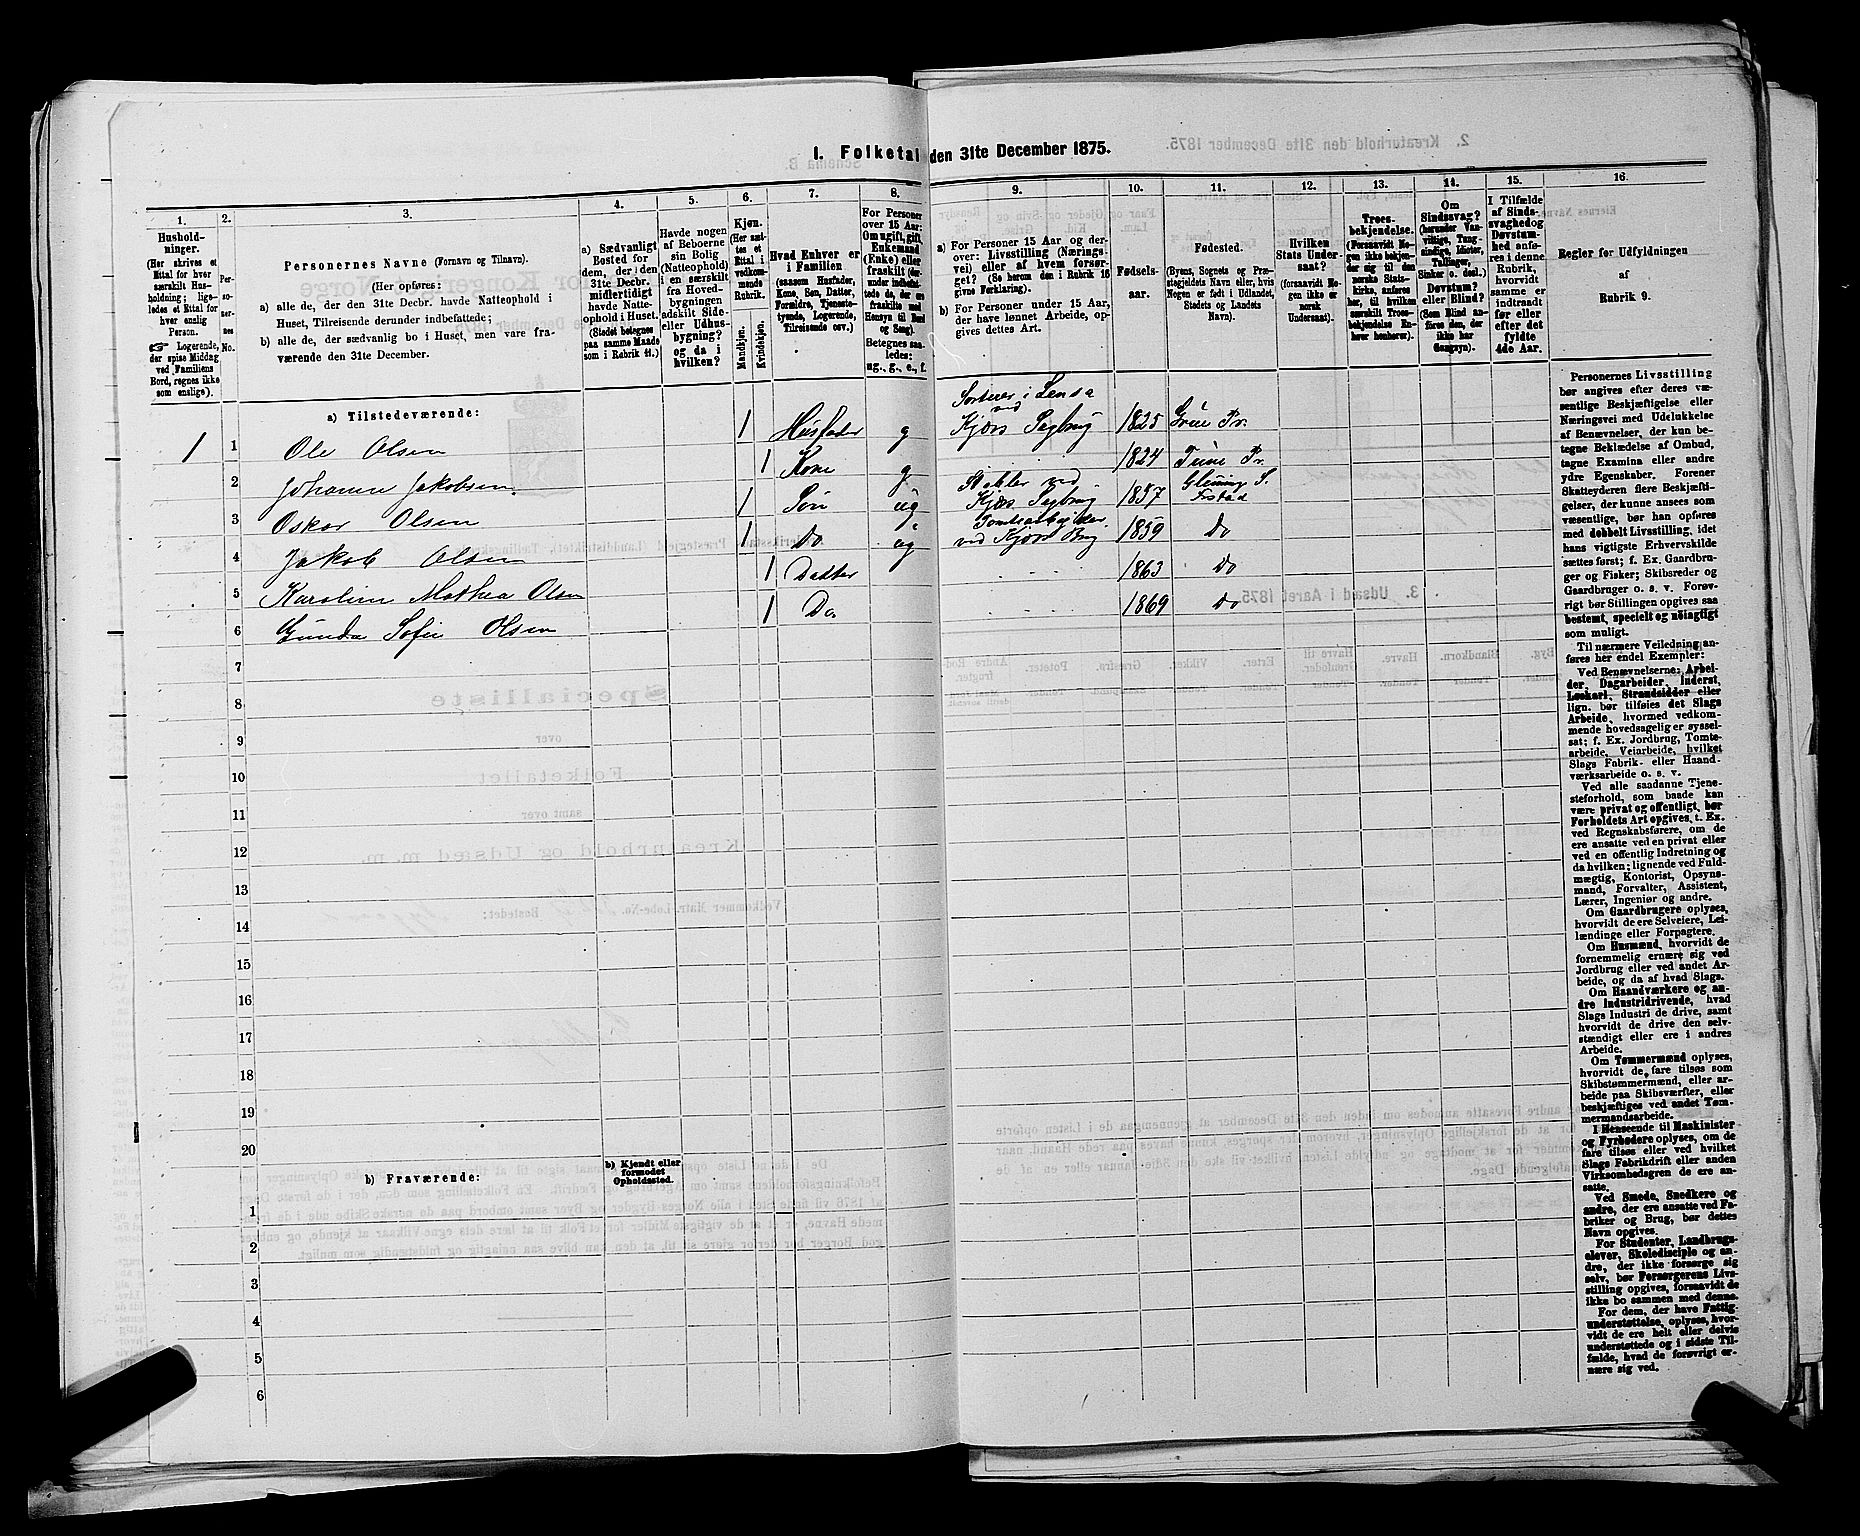 I. Folketal den 31te December 1875.
1. 2. 3. 4. 5. 6. 7. 8. 9. 10. 11. 12. 13. 14. 15. 16.
Hushold-
ninger.
(Her skrives et
Ettal for hver
særskilt Hus-
holdning; lige-
ledes et Ettal for
hver enslig
Person.
☞ Logerende,
der spise Middag
ved Familiens
Bord, regnes ikke
som enslige).
Per-
so-
ner-
nes
No.
Personernes Navne (Fornavn og Tilnavn).
(Her opføres:
a) alle de, der den 31te Decbr. havde Natteophold i
Huset, Tilreisende derunder indbefattede;
b) alle de, der sædvanlig bo i Huset, men vare fra-
værende den 31te December.
a) Sædvanligt
Bosted for
dem, der i den
31te Decbr.
midlertidigt
havde Natte-
ophold i Huset.
(Stedet betegnes
paa samme Maade
som i Rubrik 11.)
Havde nogen
af Beboerne
sin Bolig
(Natteophold)
i en særskilt
fra Hoved-
bygningen
adskilt Side-
eller Udhus-
bygning?
og da i
hvilken?
Kjøn.
(Her sæt-
tes et
Ettal i
vedkom-
mende
Rubrik.
Mandkjøn.
Kvindekjøn.
Hvad Enhver er
i Familien
(saasom Husfader,
Kone, Søn, Datter,
Forældre, Tjeneste-
tyende, Logerende,
Tilreisende osv.)
For Personer
over 15 Aar:
Om ugift, gift,
Enkemand
(Enke) eller
fraskilt (der-
under indbefat-
tede de, der ere
fraskilte med
Hensyn til Bord
og Seng).
Betegnes saa-
ledes:
ug., g., e., f.
a) For Personer 15 Aar og der-
over: Livsstilling (Nærings-
vei) eller af hvem forsør-
get? (Se herom den i Rubrik 16
givne Forklaring).
b) For Personer under 15 Aar,
der have lønnet Arbeide, op-
gives dettes Art.
Fødsels-
aar.
Fødested.
(Byens, Sognets og Præ-
stegjeldets Navn eller, hvis
Nogen er født i Udlandet,
Stedets og Landets
Navn).
Hvilken
Stats Under-
saat?
(forsaavidt No-
gen ikke er
norsk
Undersaat).
Troes-
bekjendelse.
(Forsaavidt No-
gen ikke bekjen-
der sig til den
norske Stats-
kirke, anføres
her, til hvilken
særskilt Troes-
bekjendelse En-
hver henhører).
Om
Sindssvag?
(herunder Van-
vittige, Tung-
sindige, Idioter,
Sinker o. desl.)
Døvstum?
eller Blind?
(Som Blind an-
føres den, der
ikke har
Gangsyn).
I Tilfælde
af Sinds-
svaghed og
Døvstum-
hed anfø-
res i denne
Rubrik,
hvorvidt
samme er
indtraadt
før eller
efter det
fyldte
4de Aar.
Regler for Udfyldningen
af
Rubrik 9.
a) Tilstedeværende:
1 1 Ole Olsen 1 Husfader g Sorterer i Lensa ved Kjøs Sagbrug 1825 Grue Pr.
2 Johanne Jakobsen 1 Kone g 1824 Tune Pr.
3 Oskar Olsen 1 Søn ug Stabler ved Kjøs Sagbrug 1857 Glemmig S.
4 Jakob Olsen 1 Do ug Tomtearbeider ved Kjøs Brug 1859 Do
5 Karoline Mathea Olsen 1 Datter 1863 Do
6 Gunda Sofie Olsen 1 Do. 1869 Do
7
8
9
10
11
12
13
14
15
16
17
18
19
20
b) Fraværende:
b) Kjendt eller
formodet
Opholdssted.
1
2
3
4
5
6
Personernes Livsstilling
bør angives efter deres væ-
sentlige Beskjæftigelse eller
Næringsvei med Udelukkelse
af Benævnelser, der kun be-
tegne Beklædelse af Ombud,
tagne Examina eller andre
ydre Egenskaber. Forener
Skatteyderen flere Beskjæfti-
gelser, der kunne ansees som
væsentlige, bør han opføres
med dobbelt Livsstilling, idet
hans vigtigste Erhvervskilde
sættes først; f. Ex. Gaardbru-
ger og Fisker; Skibsreder og
Gaardbruger o. s. v. Forøv-
rigt bør Stillingen opgives saa
bestemt, specielt og nøiagtigt
som muligt.
Til nærmere Veiledning an-
føres her endel Exempler:
Ved Benævnelserne: Arbei-
der, Dagarbeider, Inderst,
Løskarl, Strandsidder eller
lign. bør tilføies det Slags
Arbeide, hvormed vedkom-
mende hovedsagelig er syssel-
sat; f. Ex. Jordbrug, Tomte-
arbeide, Veiarbeide, hvilket
Slags Fabrik- eller Haand-
værksarbeide o. s. v.
Ved alle saadanne Tjene-
steforhold, som baade kan
være privat og offentligt, bør
Forholdets Art opgives, t. Ex.
ved Regnskabsførere, om de
ere ansatte ved en privat eller
ved en offentlig Indretning og
da hvilken; lignende ved Fuld-
mægtig, Kontorist, Opsyns-
mand, Forvalter, Assistent,
Lærer, Ingeniør og andre.
Om Gaardbrugere oplyses,
hvorvidt de ere Selveiere, Lei-
lændinge eller Forpagtere.
Om Husmænd, hvorvidt de
fornemmelig ernære sig ved
Jordbrug eller ved andet Ar-
beide, og da af hvad Slags.
Om Haandværkere og an-
dre Industridrivende, hvad
Slags Industri de drive, samt
hvorvidt de drive den selv-
stændigt eller ere i andres
Arbeide.
Om Tømmermænd oplyses,
hvorvidt de fare tilsøs som
Skibstømmermænd, eller ar-
beide paa Skibsværfter, eller
beskjæftiges ved andet Tøm-
mermandsarbeide.
I Henseende til Maskinister
og Fyrbødere oplyses, om de
fare tilsøs eller ved hvilket
Slags Fabrikdrift eller anden
Virksomhedsgren de ere an-
satte.
Ved Smede, Snedkere og
andre, der ere ansatte ved Fa-
briker og Brug, bør dettes
Navn opgives.
For Studenter, Landbrugs-
elever, Skoledisciple og an-
dre, der ikke forsørge sig
selv, bør Forsørgerens Livs-
stilling opgives, forsaavidt de
ikke bo sammen med denne.
For dem, der have Fattig-
understøttelse, oplyses, hvor-
vidt de ere helt eller delvis
understøttede og i sidste Til-
fælde, hvad de forøvrigt er-
nære sig ved.